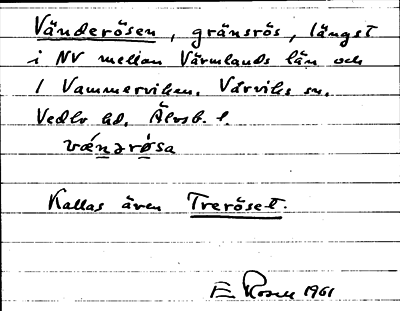 Vänderösen, gränsrös, längst
i NV mellan Värmlands län och
l Vammerviken. Vårviks sn.
Vedbo hd. Älvsb. l.
vä́nərø̀sa
Kallas även Treröset.
E Rosell 1961